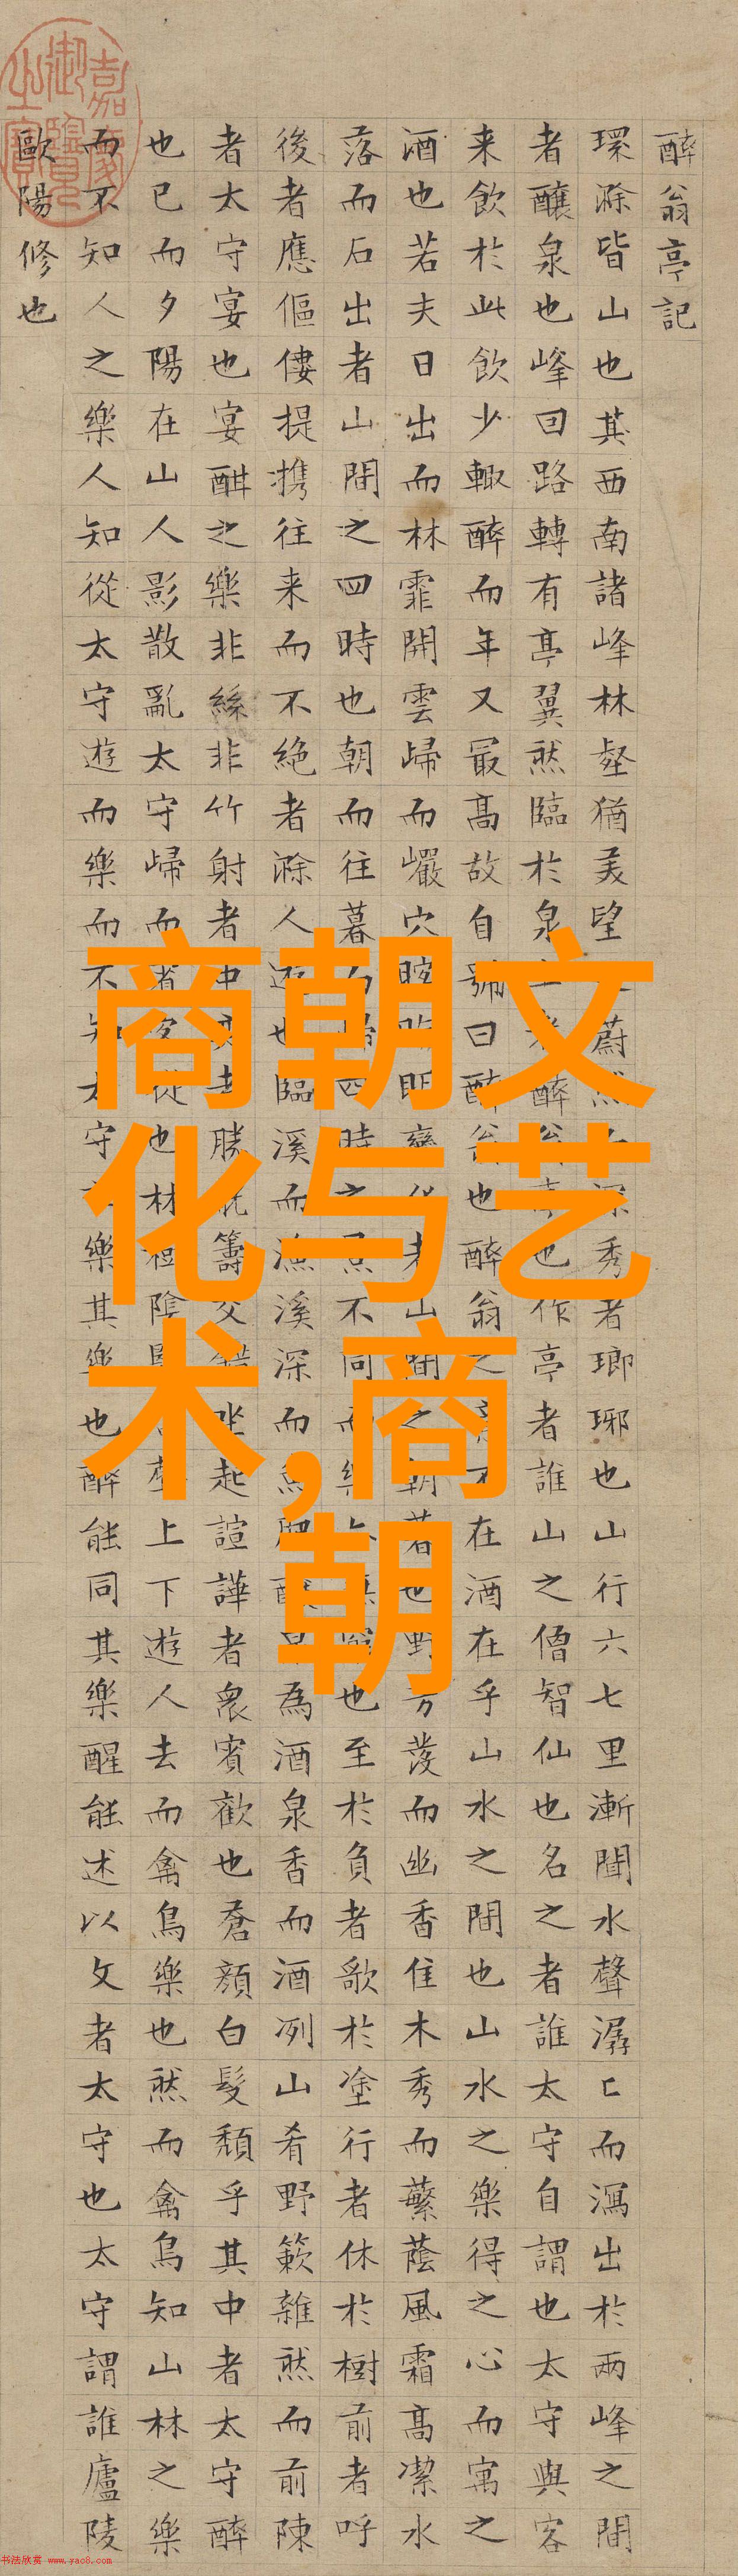 醉翁亭記
環滁皆山也其西南諸峰林壑猶美望蔚然深秀者瑯琊也山行六七里漸聞水聲潺〻而瀉出於兩峰之間
者釀泉也峰回路轉有亭翼然臨於泉上者醉翁亭也作亭者誰山之僧智仙也名之者誰太守自謂也太守與客
来飲於此飲少輒醉而年又最高故自號曰醉翁也醉翁之意不在酒在乎山水之間也山水之樂得之心而寓之
酒也若夫日出而林霏開雲歸而巖穴暝晦明變化者山間之朝暮也野芳發而幽香佳木秀而蘩蔭風霜高潔水
落而石出者山間之四時也朝而往暮而歸四時之景不同而樂亦無窮也至於負者歌於塗行者休於樹前者呼
後者應傴僂提携往来而不絶者滁人遊也臨溪而漁溪深而魚肥釀泉為酒泉香而酒冽山肴野簌雜然而前陳
者太守宴也宴酣之樂非絲非竹射者中奕者勝觥籌交錯坐起諠譁者衆賓歡也蒼顏白髮頹乎其中者太守醉
也已而夕陽在山人影散亂太守歸而賓客從也林陰翳聲上下遊人去而禽鳥樂也然而禽鳥知山林之樂
而不知人之樂人知從太守遊而樂而不知太守之樂其樂也醉能同其樂醒能述以文者太守也太守謂誰廬陵
歐陽修也
嘉慶御覽之寶
商朝文
化与艺
术,商
朝
书法欣赏 www.yac8.com